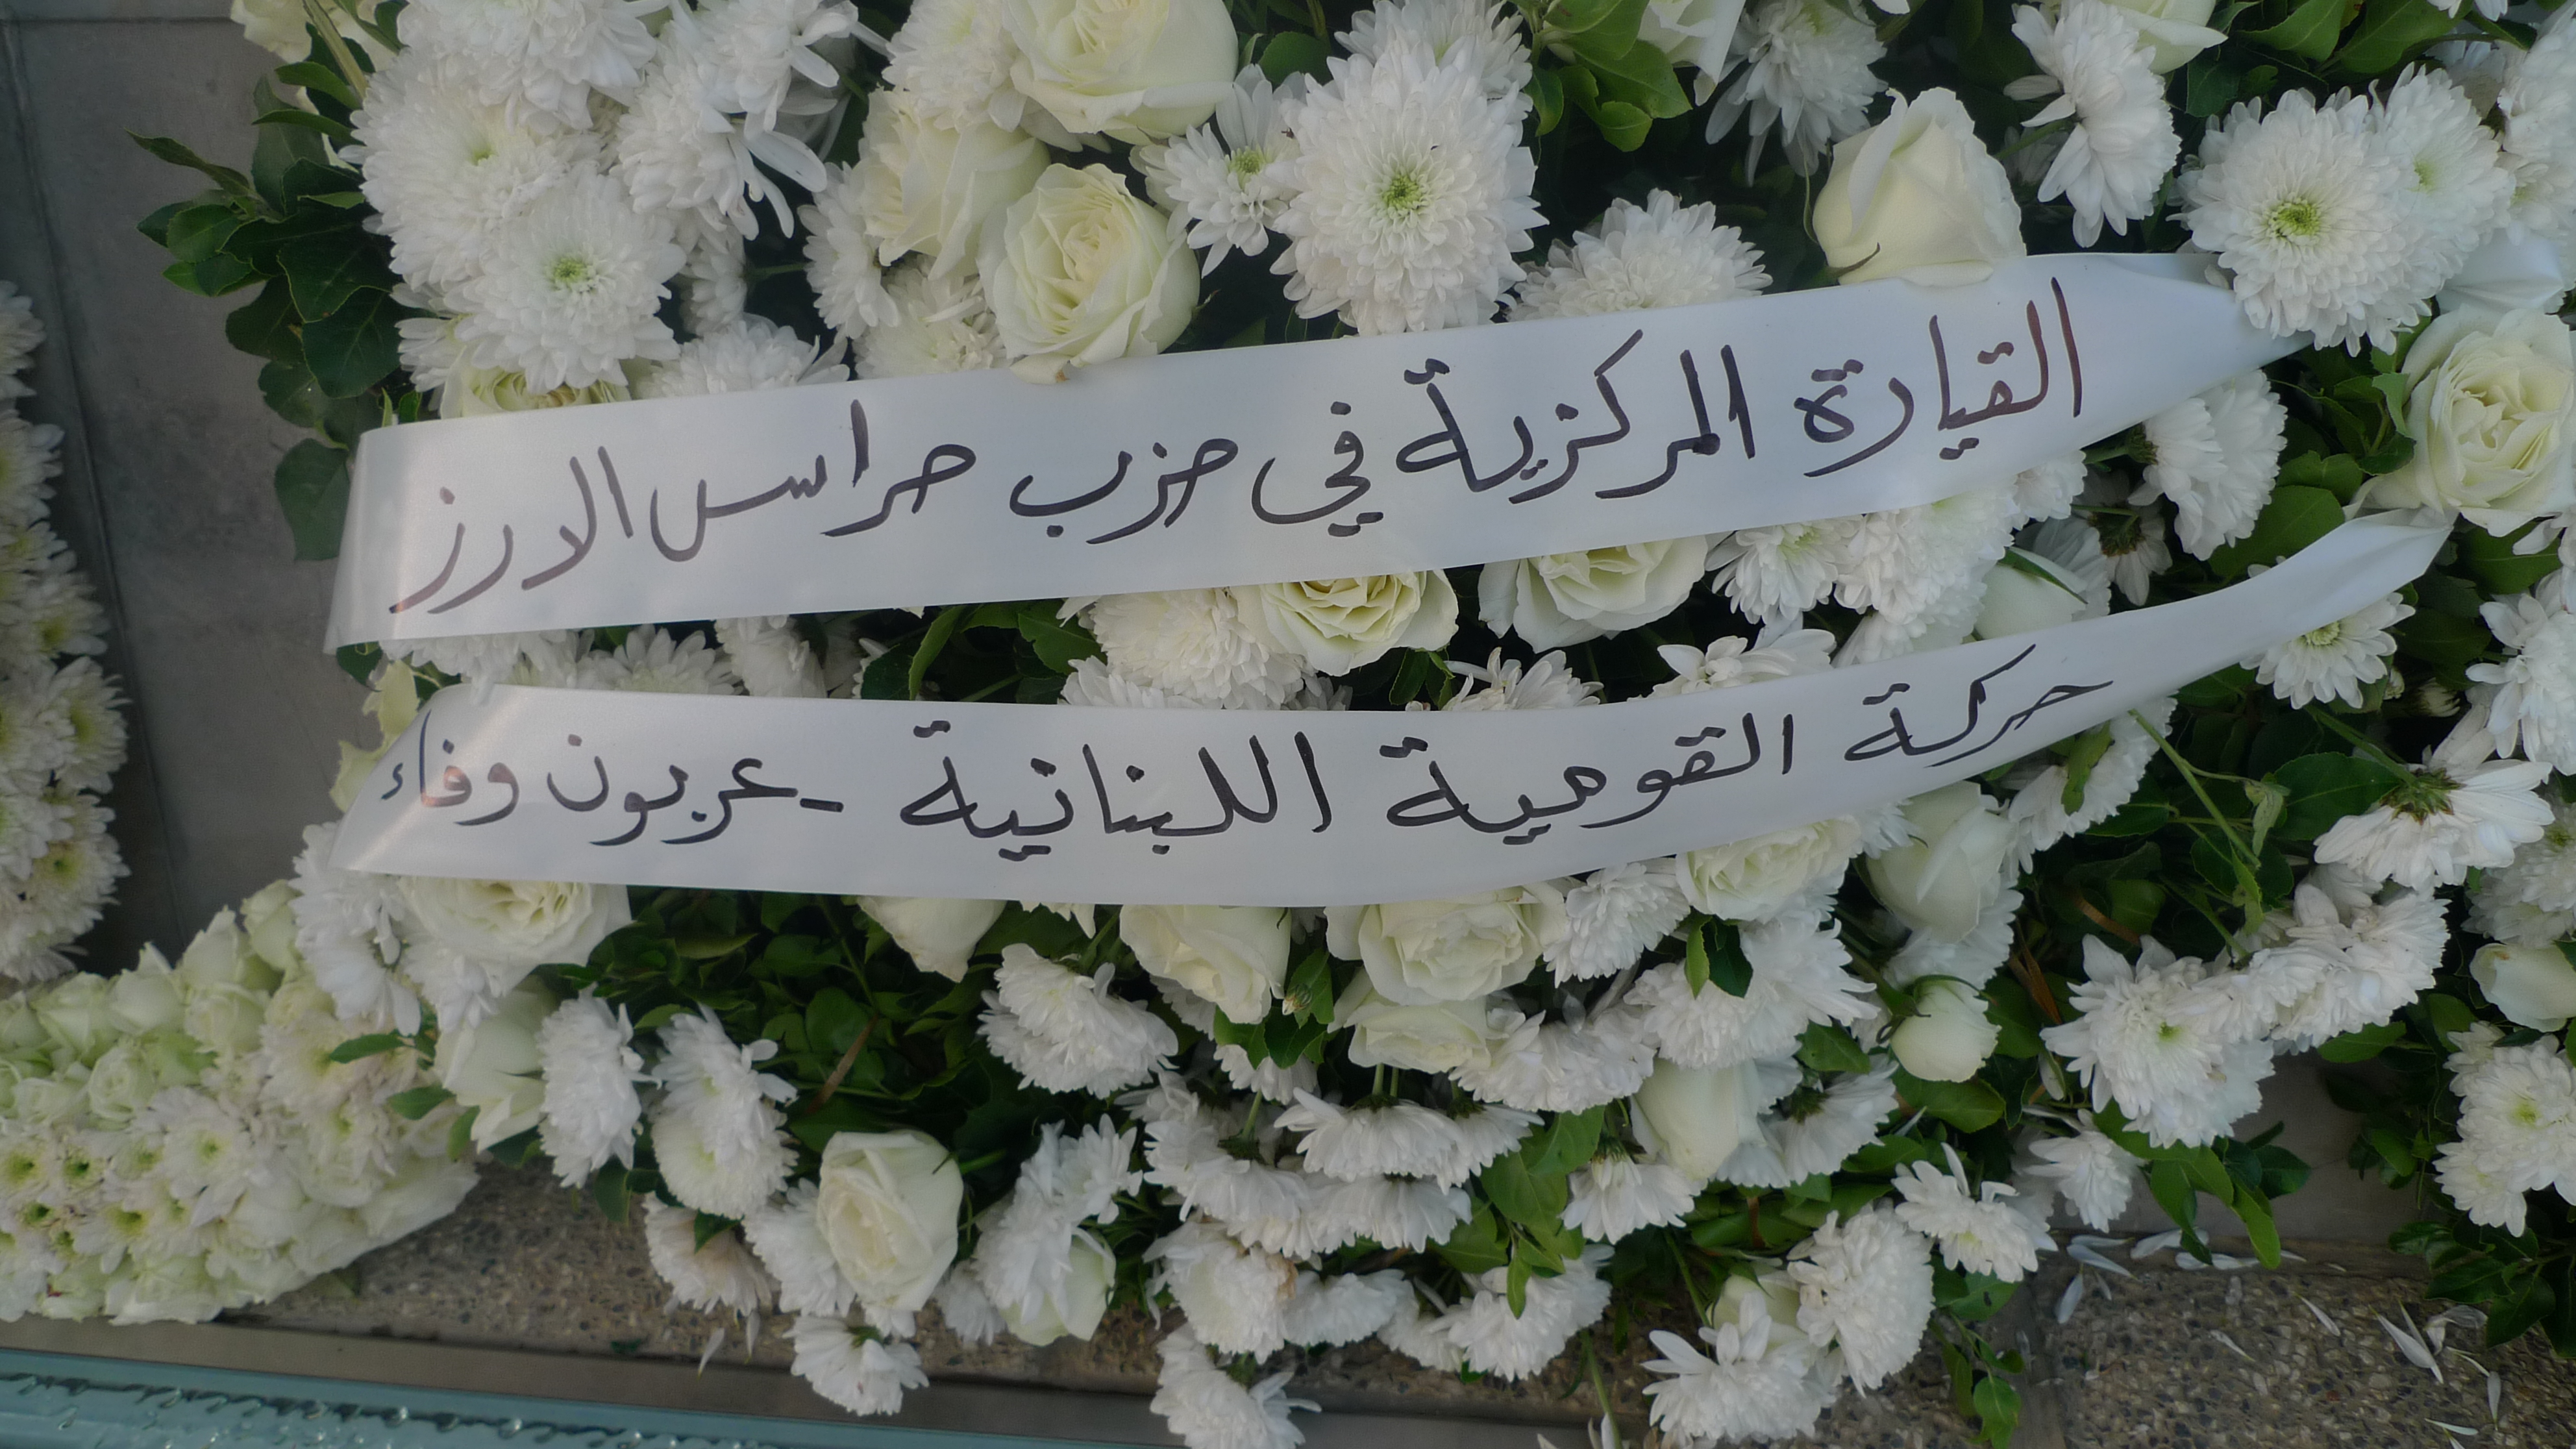 القيادة المركزية في حزب حراس الارز
حركة القومية اللبنانية - عربون وفاء